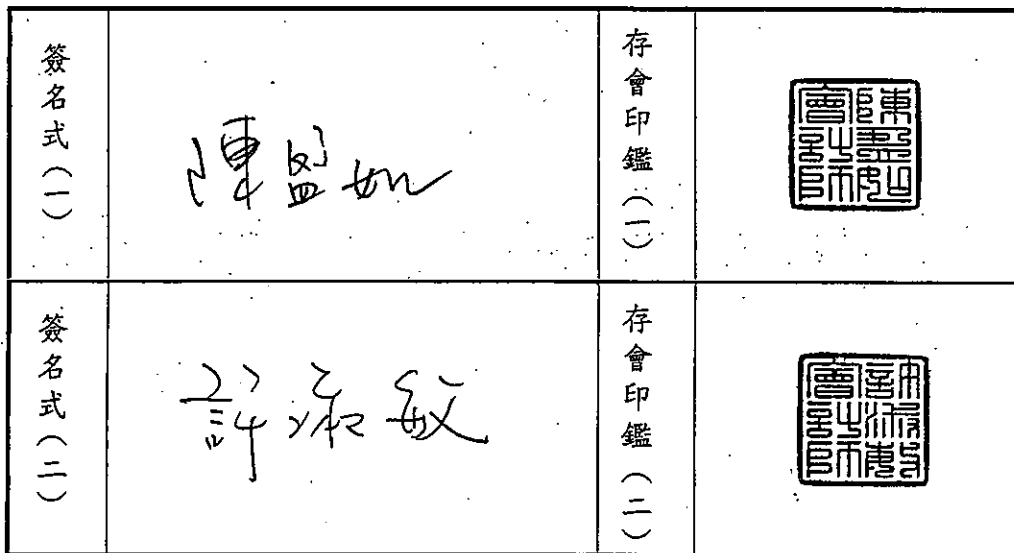 簽名式（一）
陳盈如
存會印鑑（一）
陳盈如會計師
簽名式（二）
許淑敏
存會印鑑（二）
許淑敏會計師